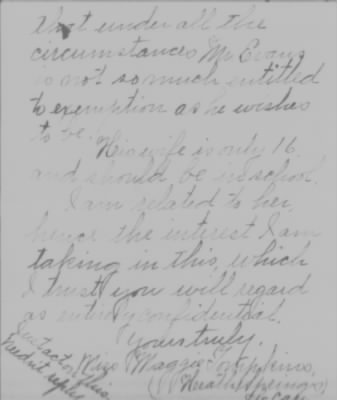 that under all the
circumstances Mr Evans
is not so much entitled
to exemption as he wishes
to be.
His wife is only 16
and should be in school.
I am related to her,
hence the interest I am
taking in this, which
I trust you will regard
as entirely confidential.
Yours truly,
Miss Maggie Hopkins,
(Heath Springs)
Just act on this
Needn't reply